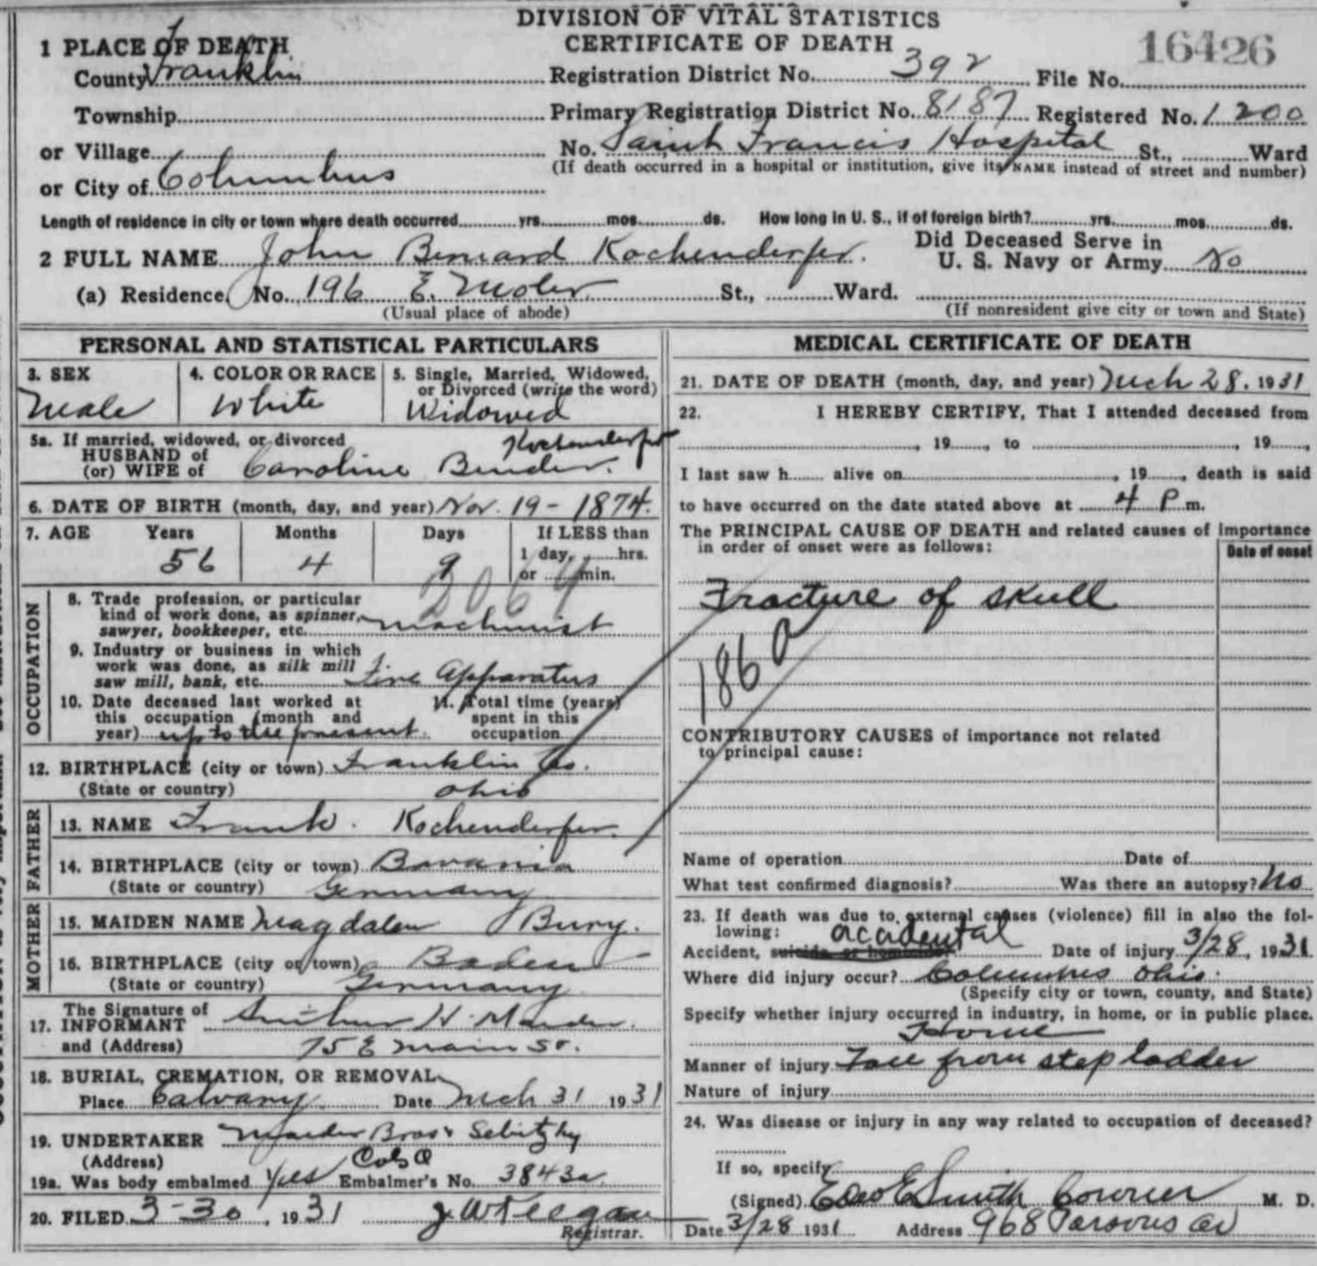 DIVISION OF VITAL STATISTICS
CERTIFICATE OF DEATH
16426
1 PLACE OF DEATH
County Franklin Registration District No. 392 File No.
Township Primary Registration District No. 8187 Registered No. 1200
or Village No. Saint Francis Hospital St., Ward
(If death occurred in a hospital or institution, give its NAME instead of street and number)
or City of Columbus
Length of residence in city or town where death occurred yrs. mos. ds. How long in U. S., if of foreign birth? yrs. mos. ds.
2 FULL NAME John Bernard Kochenderfer. Did Deceased Serve in U. S. Navy or Army No
(a) Residence. No. 196 E. Moler St., Ward.
(Usual place of abode) (If nonresident give city or town and State)
PERSONAL AND STATISTICAL PARTICULARS
3. SEX 4. COLOR OR RACE 5. Single, Married, Widowed, or Divorced (write the word)
Male White Widowed
5a. If married, widowed, or divorced
HUSBAND of
(or) WIFE of Caroline Binder. Kochenderfer
6. DATE OF BIRTH (month, day, and year) Nov. 19 - 1874.
7. AGE Years Months Days If LESS than
56 4 9 1 day, hrs.
or min.
2064
OCCUPATION
8. Trade profession, or particular
kind of work done, as spinner,
sawyer, bookkeeper, etc. machinist
9. Industry or business in which
work was done, as silk mill
saw mill, bank, etc. Fire Apparatus
10. Date deceased last worked at
this occupation (month and
year) up to the present.
11. Total time (years)
spent in this
occupation
12. BIRTHPLACE (city or town) Franklin Co.
(State or country) Ohio
FATHER
13. NAME Frank. Kochenderfer.
14. BIRTHPLACE (city or town) Bavaria
(State or country) Germany
MOTHER
15. MAIDEN NAME Magdalen Bury.
16. BIRTHPLACE (city or town) Baden
(State or country) Germany
17. The Signature of
INFORMANT H.
and (Address) 75 E Main St.
18. BURIAL, CREMATION, OR REMOVAL
Place Calvary. Date Mch 31 1931
19. UNDERTAKER Bros &
(Address) Cols O
19a. Was body embalmed Yes Embalmer's No. 3843a
20. FILED 3-30, 1931 J W Keegan
Registrar.
MEDICAL CERTIFICATE OF DEATH
21. DATE OF DEATH (month, day, and year) Mch 28, 1931
22. I HEREBY CERTIFY, That I attended deceased from
, 19 , to , 19 ,
I last saw h alive on , 19 , death is said
to have occurred on the date stated above at 4 P m.
The PRINCIPAL CAUSE OF DEATH and related causes of importance
in order of onset were as follows:
Date of onset
Fracture of skull
186a
CONTRIBUTORY CAUSES of importance not related
to principal cause:
Name of operation Date of
What test confirmed diagnosis? Was there an autopsy? No
23. If death was due to external causes (violence) fill in also the fol-
lowing: accidental
Accident, suicide or homicide Date of injury 3/28, 1931
Where did injury occur? Columbus Ohio.
(Specify city or town, county, and State)
Specify whether injury occurred in industry, in home, or in public place.
Home
Manner of injury Fall from step ladder
Nature of injury
24. Was disease or injury in any way related to occupation of deceased?
If so, specify
(Signed) E Smith Coroner M. D.
Date 3/28 1931 Address 968 Parsons Av